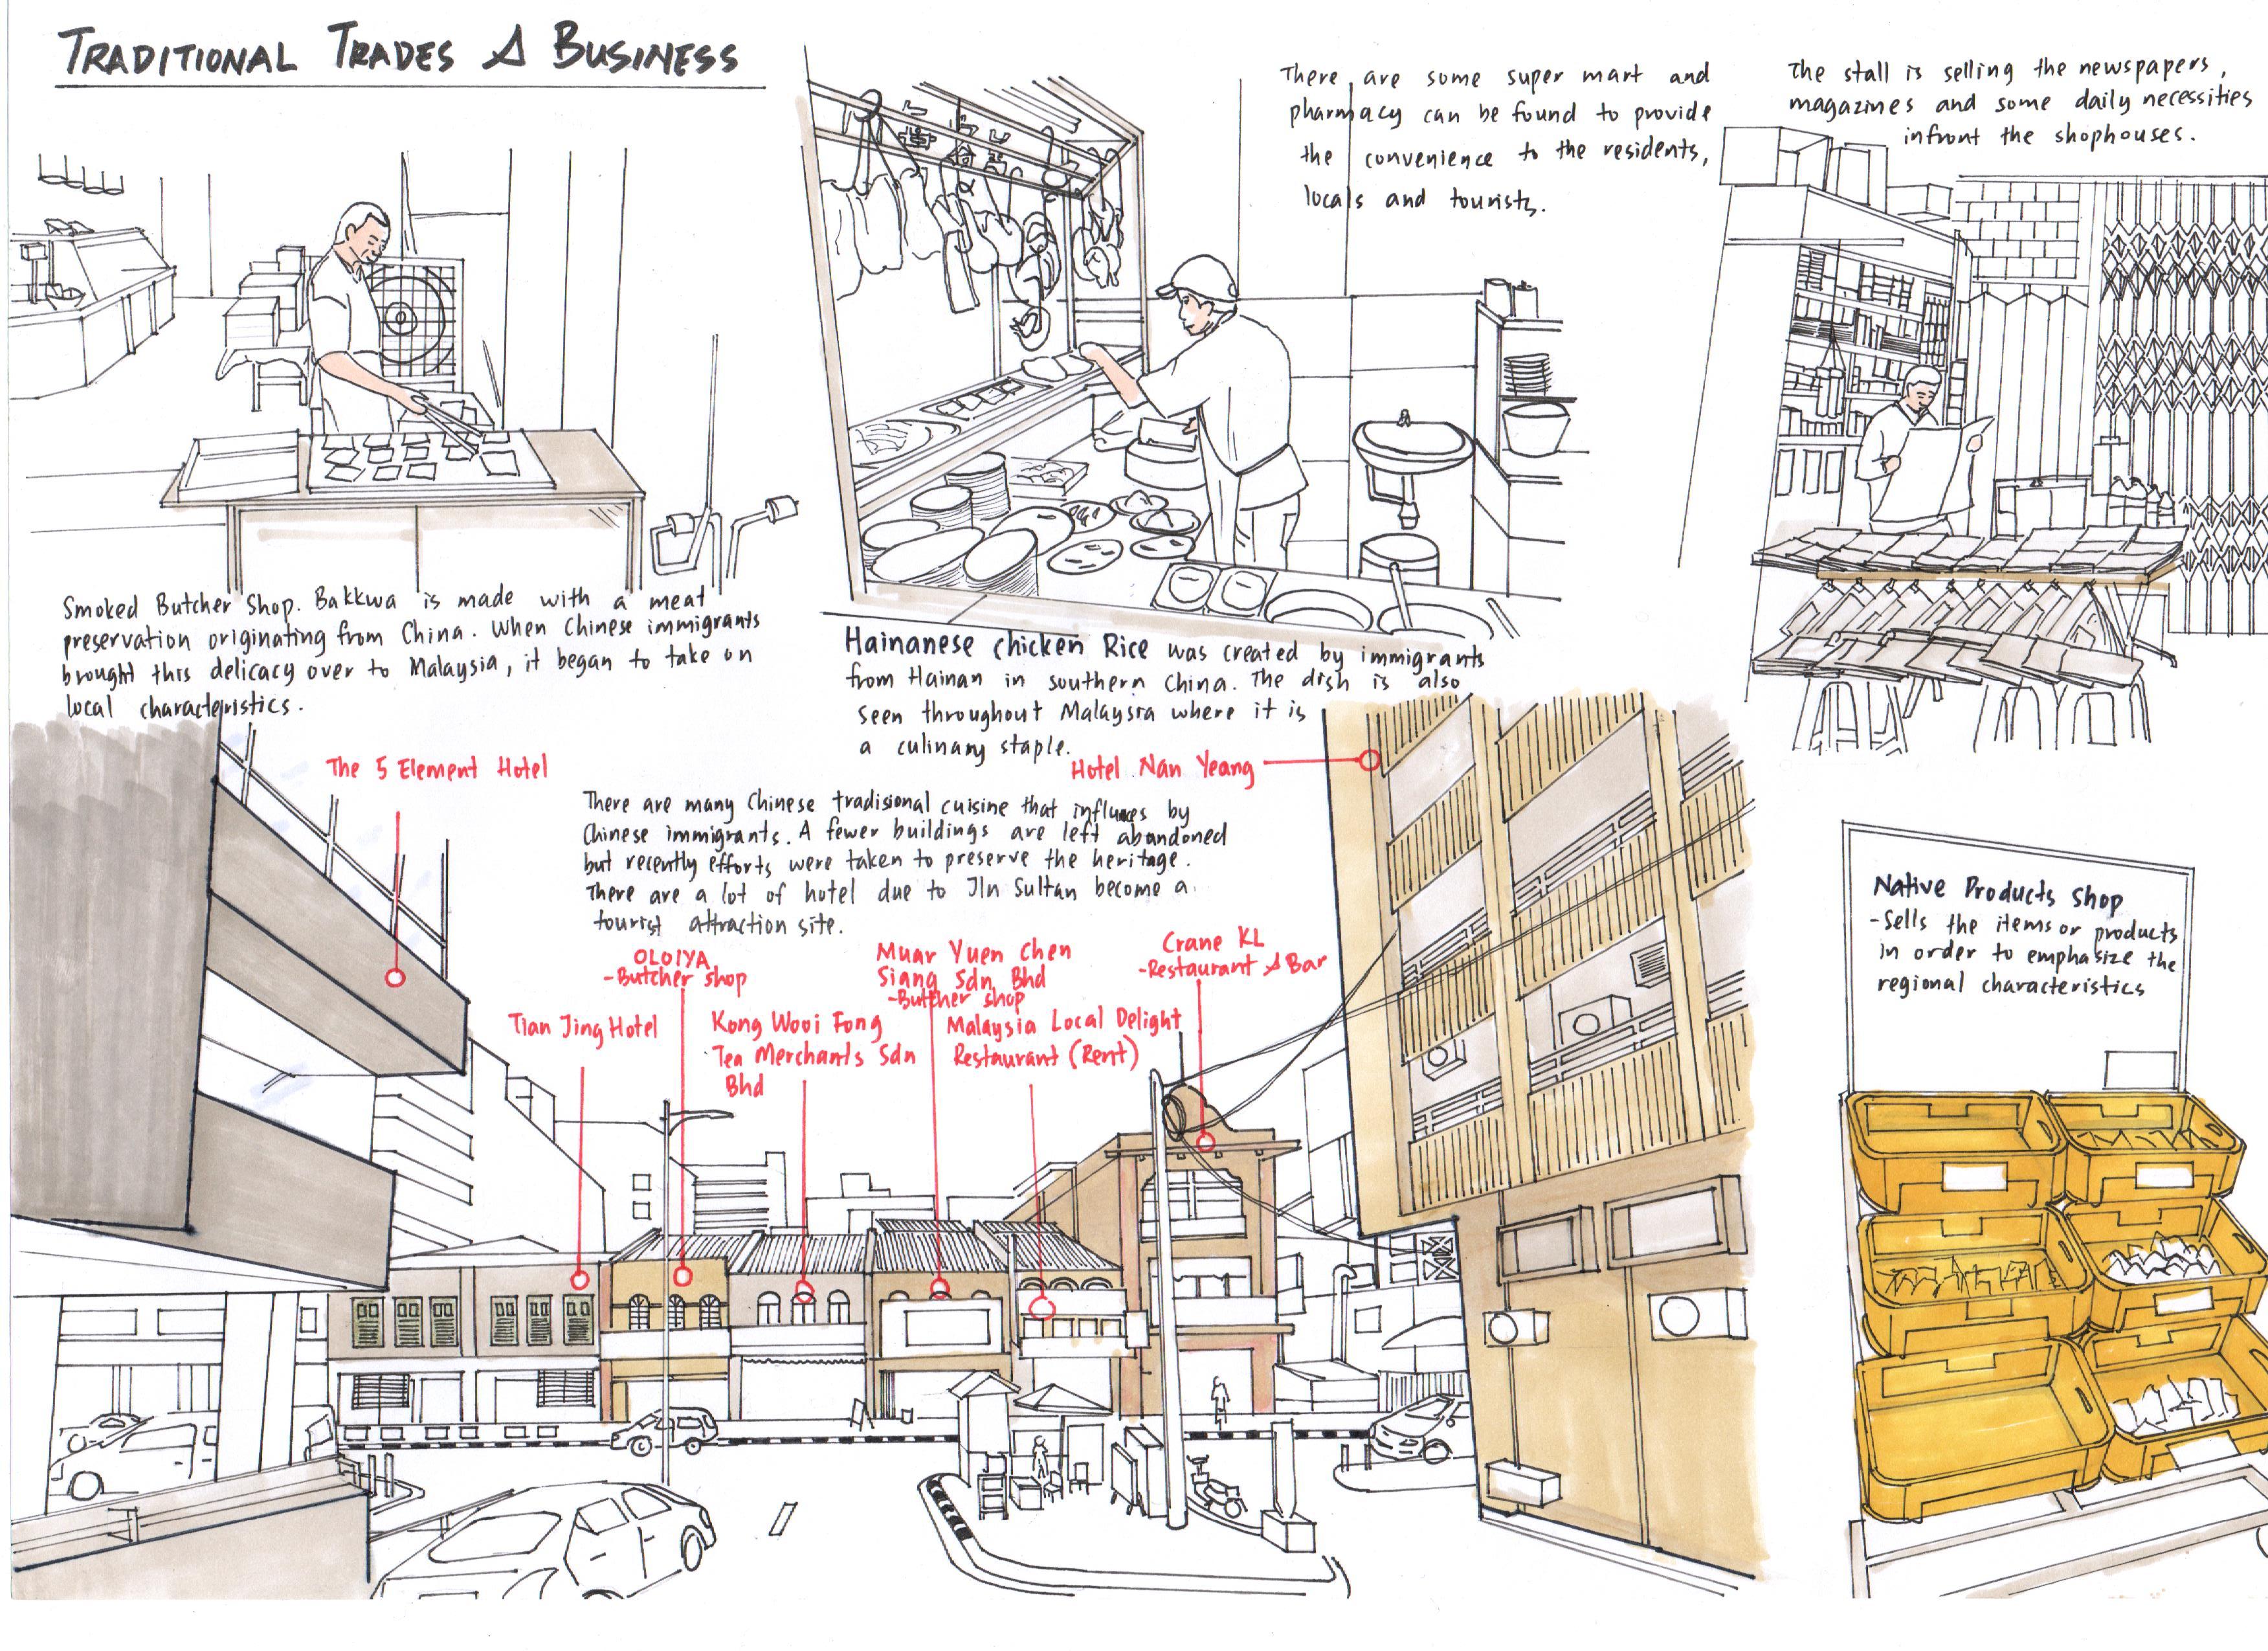 TRADITIONAL TRADES & BUSINESS
Smoked Butcher Shop. Bakkwa is made with a meat
preservation originating from China. When Chinese immigrants
brought this delicacy over to Malaysia, it began to take on
local characteristics.
Hainanese chicken Rice was created by immigrants
from Hainan in southern China. The dish is also
seen throughout Malaysia where it is
a culinary staple.
There are some super mart and
pharmacy can be found to provide
the convenience to the residents,
locals and tourists.
The stall is selling the newspapers,
magazines and some daily necessities
infront the shophouses.
The 5 Element Hotel
Hotel Nan Yeang
There are many Chinese tradisional cuisine that influnces by
Chinese immigrants. A fewer buildings are left abandoned
but recently efforts were taken to preserve the heritage.
There are a lot of hotel due to Jln Sultan become a
tourist attraction site.
Tian Jing Hotel
OLOIYA
-Butcher shop
Kong Wooi Fong
Tea Merchants Sdn
Bhd
Muar Yuen Chen
Siang Sdn Bhd
-Butcher shop
Malaysia Local Delight
Restaurant (Rent)
Crane KL
-Restaurant & Bar
Native Products Shop
-Sells the items or products
in order to emphasize the
regional characteristics